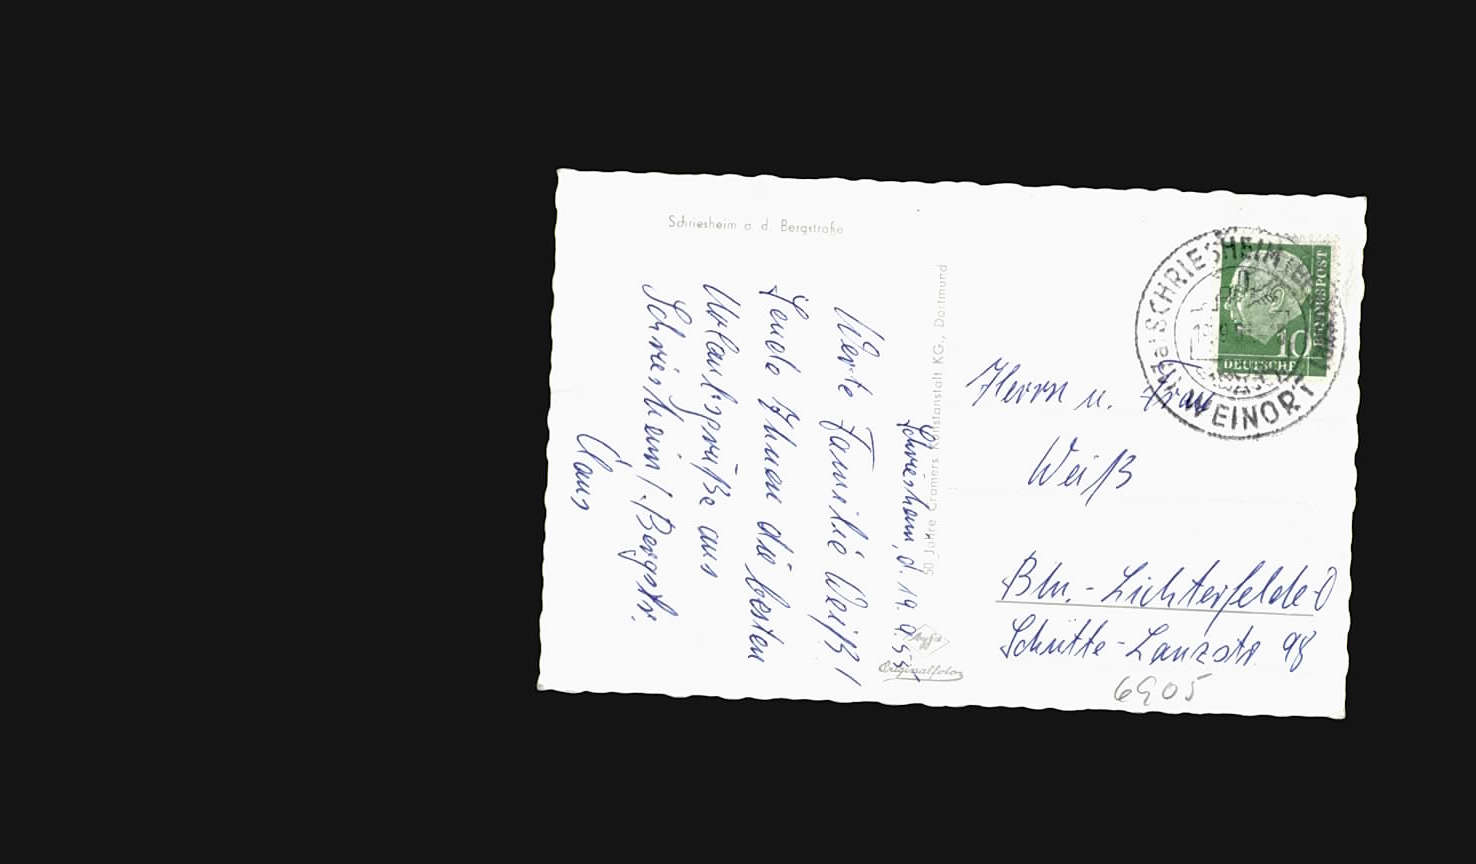 Schriesheim a. d. Bergstraße
Schriesheim, d. 19. 9. 55
Werte Familie Weiß!
Sende Ihnen die besten
Urlaubsgrüße aus
Schriesheim / Bergstr.
Claus
50 Jahre Cramers Kunstanstalt KG., Dortmund
Agfa
Originalfoto
SCHRIESHEIM
WEINORT
BUNDESPOST
10
DEUTSCHE
Herrn u. Frau
Weiß
Bln.-Lichterfelde-O
Schütte-Lanzstr. 98
6905